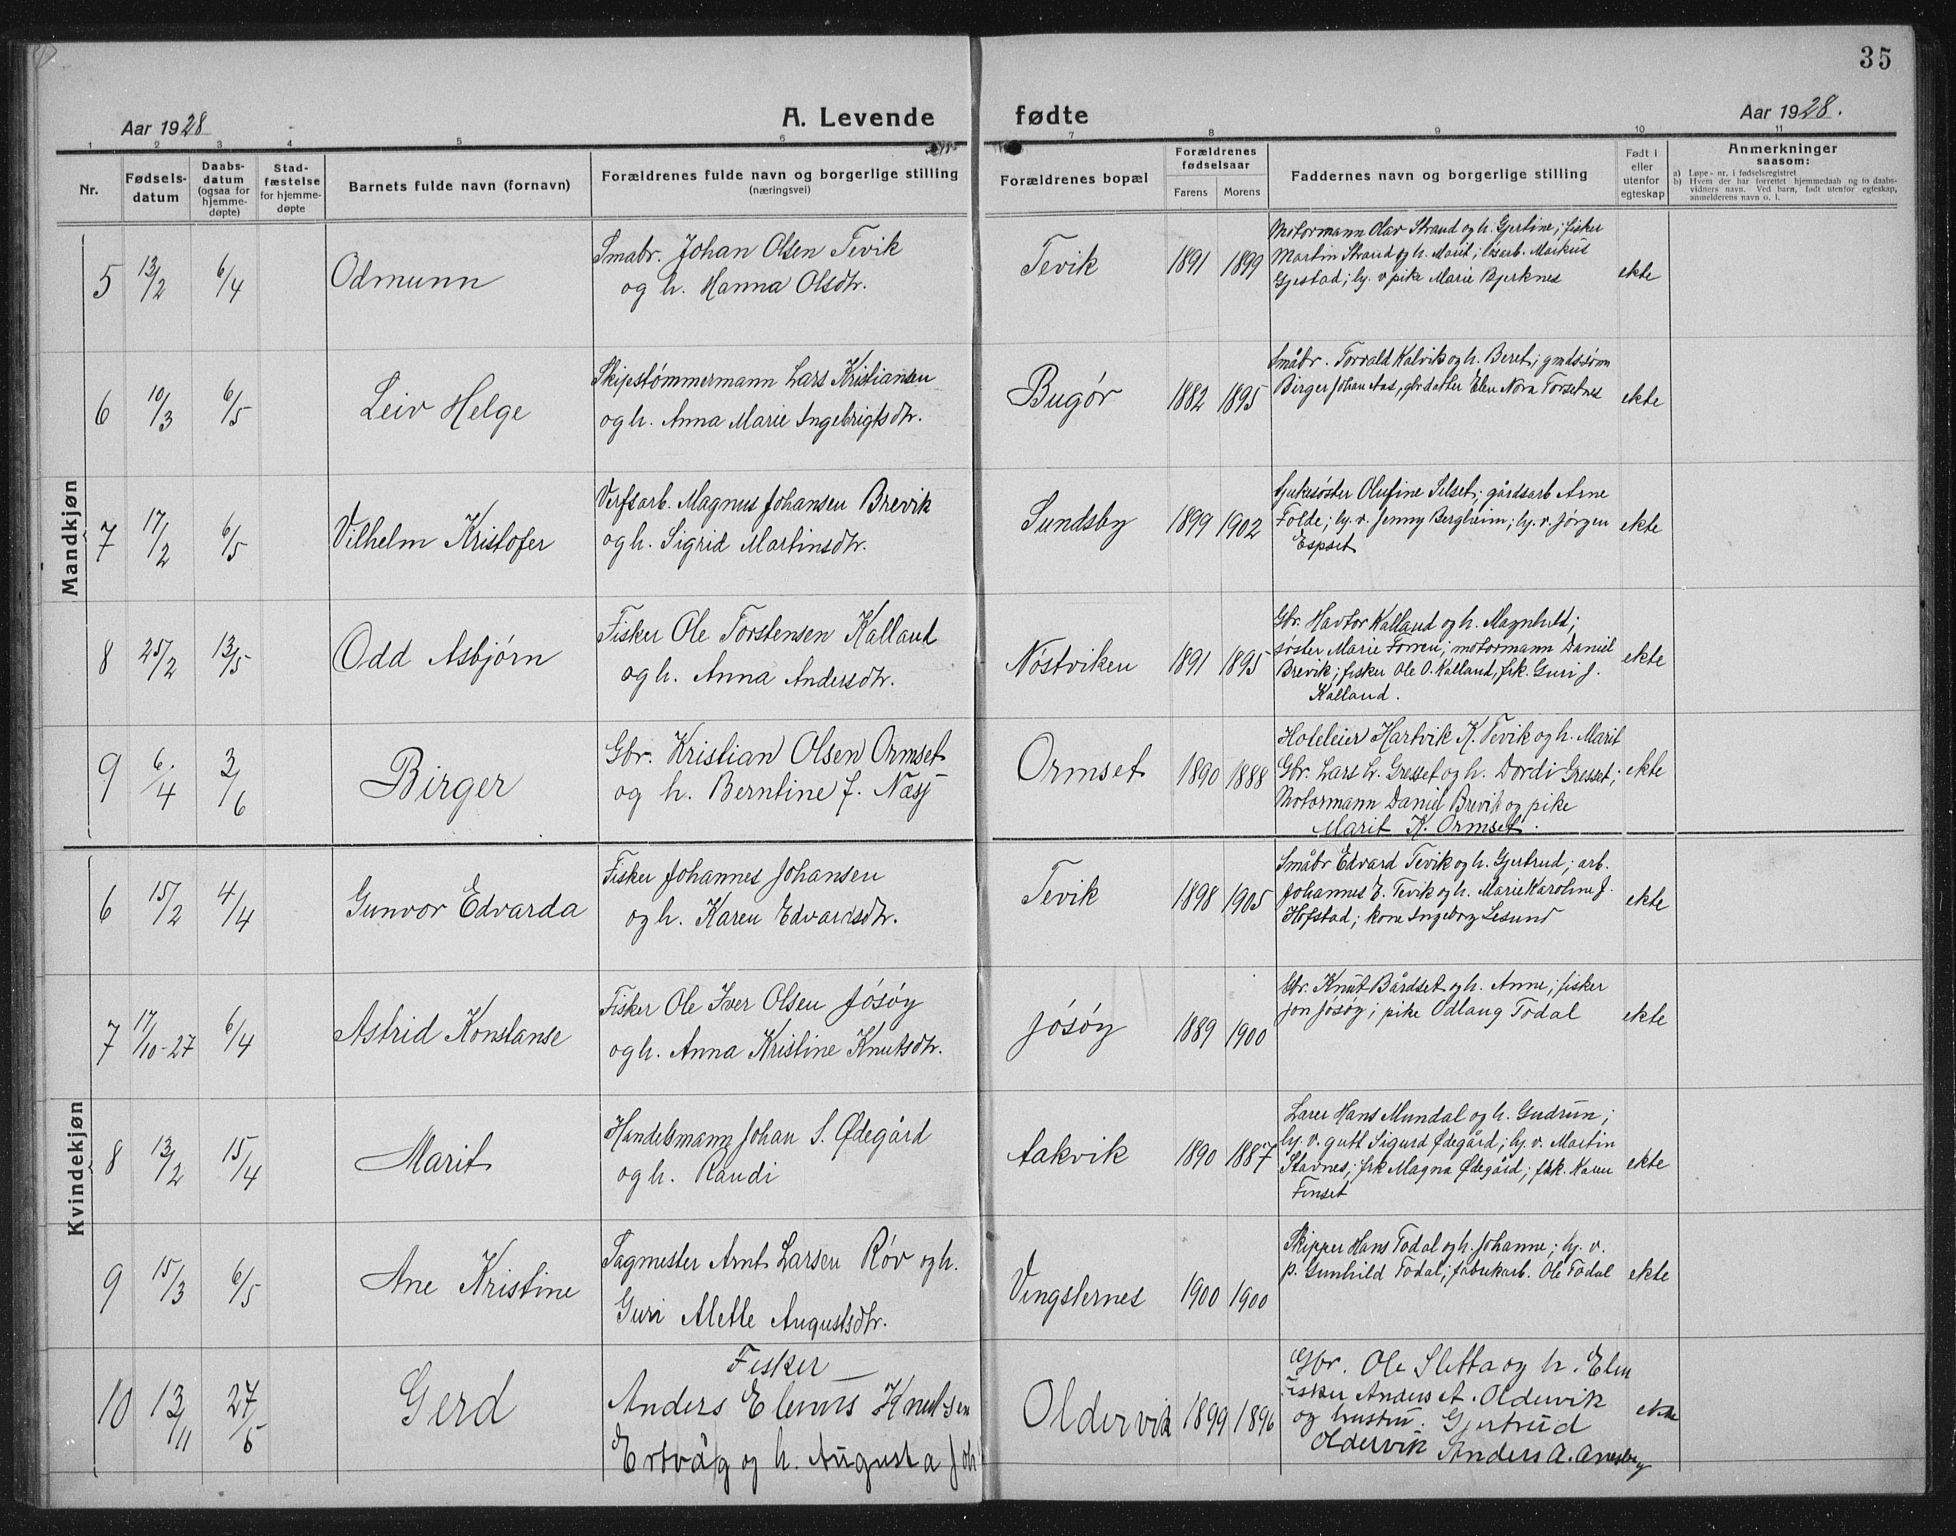 35
Aar 1928
A. Levende fødte
Aar 1928.
1 2 3 4 5 6 7 8 9 10 11
Nr.
Fødsels-
datum
Daabs-
datum
(ogsaa for
hjemme-
døpte)
Stad-
fæstelse
for hjemme-
døpte
Barnets fulde navn (fornavn)
Forældrenes fulde navn og borgerlige stilling
(næringsvei)
Forældrenes bopæl
Forældrenes
fødselsaar
Farens Morens
Faddernes navn og borgerlige stilling
Født i
eller
utenfor
egteskap
Anmerkninger
saasom:
a) Løpe-nr. i fødselsregistret
b) Hvem der har forrettet hjemmedaab og to daabs-
vidners navn. Ved barn, født utenfor egteskap,
anmelderens navn o. l.
Mandkjøn
5 13/2 6/4 Odmunn
Smabr. Johan Olsen Tevik
og h. Hanna Olsdtr.
Tevik 1891 1899
Motormann Olav Strand og h. Gjertine; fisker
Martin Strand og h. Marit; løsarb. Markus
Gjestad; hj. v pike Marie Bjerknes
ekte
6 10/3 6/5 Leiv Helge
Skipstømmermann Lars Kristiansen
og h. Anna Marie Ingebrigtsdtr.
Bugør 1882 1895
Småbr. Torvald Kalvik og h. Beret; gmdssønn
Birger Johan Aas, gbrdatter Elen Nora Torsetnes
ekte
7 17/2 6/5 Vilhelm Kristofer
Verfsarb. Magnus Johansen Brevik
og h. Sigrid Martinsdtr.
Sundsby 1899 1902
Sykesøster Olufine Silset; gårdsarb Arne
Folde; hj. v. Jenny Bergheim; hj. v. Jørgen
Espset
ekte
8 25/2 13/5 Odd Asbjørn
Fisker Ole Torstensen Kalland
og h. Anna Andersdtr.
Nøstviken 1891 1895
Gbr. Havtor Kalland og h. Magnhild;
søster Marie Forren; motormann Daniel
Brevik; fisker Ole O. Kalland, frk. Guri J.
Kalland.
ekte
9 6/4 3/6 Birger
Gbr. Kristian Olsen Ormset
og h. Berntine J. Næsj
Ormset 1890 1888
Hoteleier Hartvik K. Tevik og h. Marit
Gbr. Lars L. Gresset og h. Dordi Gresset;
Motormann Daniel Brevik og pike
Marit K. Ormset.
ekte
Kvindekjøn
6 15/2 4/4 Gunvor Edvarda
Fisker Johannes Johansen
og h. Karen Edvardsdtr.
Tevik 1898 1905
Småbr Edvard Tevik og h. Gjertrud; arb.
Johannes E. Tevik og h. Marie Karoline J.
Hofstad; kone Ingeborg Lesund
ekte
7 17/10-27 6/4 Astrid Konstanse
Fisker Ole Iver Olsen Jøsøy
og h. Anna Kristine Knutsdtr.
Jøsøy 1889 1900
Gbr. Knut Bårdset og h. Anne; fisker
Jon Jøsøy; pike Odlaug Todal
ekte
8 13/2 15/4 Marit
Handelsmann Johan S. Ødegård
og h. Randi
Aakvik 1890 1887
Lærer Hans Mundal og h. Gudrun;
hj. v. gutt Sigurd Ødegård; hj. v. Martin
Stavnes; frk Magna Ødegård; frk. Karen
Finset
ekte
9 15/3 6/5 Ane Kristine
Sagmester Arnt Larsen Røv og h.
Guri Alette Augustsdtr.
Vingsternes 1900 1900
Skipper Hans Todal og h. Johanne; hj. v.
p. Gunhild Todal; fabrikarb. Ole Todal
ekte
10 13/11 27/5 Gerd
Fisker
Anders Elenius Knutsen
Ertvåg og h. Augusta Joh
Oldervik 1899 1896
Gbr. Ole Sletta og h. Elen
Fisker Anders A. Oldervik
og hustru. Gjertrud
Oldervik Anders A.
ekte